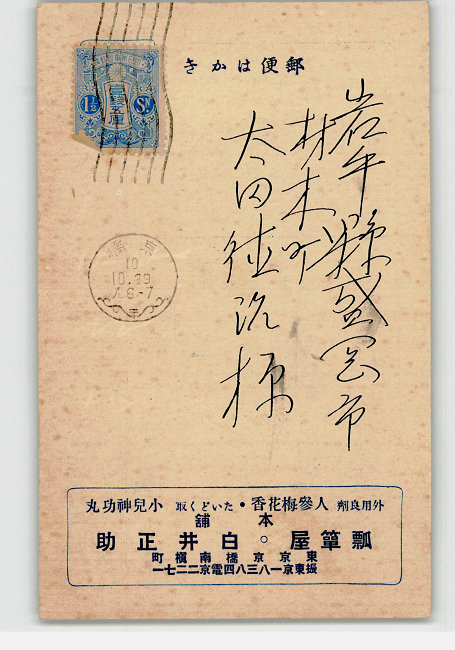 郵便はがき
1½ Sn
京橋
10
10.29
岩手縣盛岡市
材木町
太田徳次様
外用良剤 人參梅花香・たいどく取 小兒神功丸
本舗
瓢簞屋。白井正助
東京京橋南槇町
振東京一八三八四電京二二七一